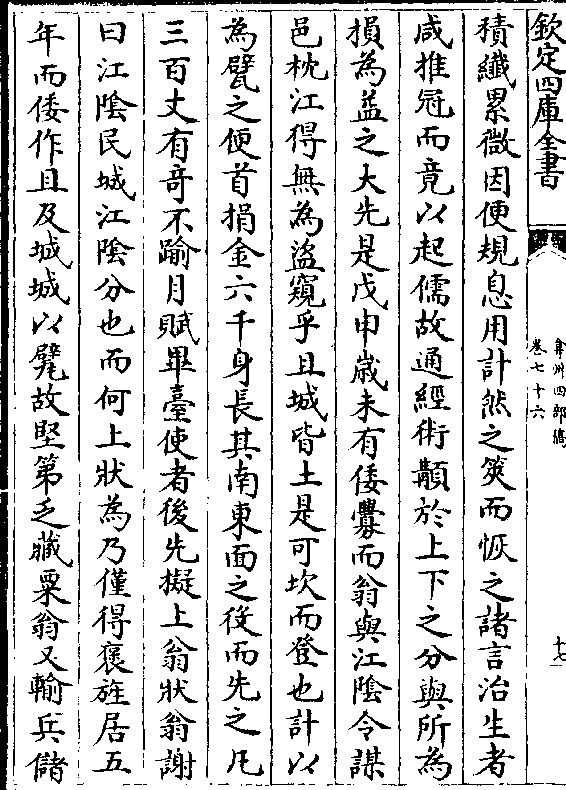 欽定四庫全書
弇州四部稿
卷七十六
十七
積纖累微因便規息用計然之筴而恢之諸言治生者
咸推冠而竟以起儒故通經術顓於上下之分與所為
損為益之大先是戊申歲未有倭釁而翁與江陰令謀
邑枕江得無為盜窺乎且城皆土是可坎而登也計以
為甓之便首捐金六千身長其南東面之役而先之凡
三百丈有奇不踰月賦畢臺使者後先擬上翁狀翁謝
曰江陰民城江陰分也而何上狀為乃僅得褒旌居五
年而倭作且及城城以甓故堅第乏藏粟翁又輸兵儲